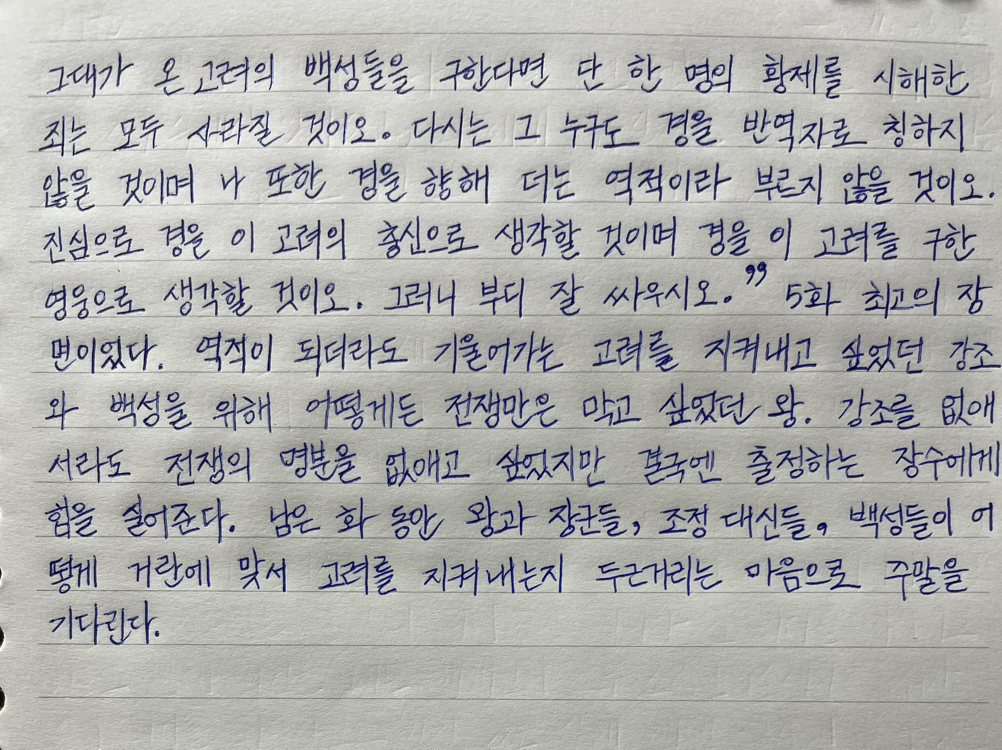 그대가 온 고려의 백성들을 구한다면 단 한 명의 황제를 시해한
죄는 모두 사라질 것이오. 다시는 그 누구도 경을 반역자로 칭하지
않을 것이며 나 또한 경을 향해 더는 역적이라 부르지 않을 것이오.
진심으로 경을 이 고려의 충신으로 생각할 것이며 경을 이 고려를 구한
영웅으로 생각할 것이오. 그러니 부디 잘 싸우시오.” 5화 최고의 장
면이었다. 역적이 되더라도 기울어가는 고려를 지켜내고 싶었던 강조
와 백성을 위해 어떻게든 전쟁만은 막고 싶었던 왕. 강조를 없애
서라도 전쟁의 명분을 없애고 싶었지만 결국엔 출정하는 장수에게
힘을 실어준다. 남은 화 동안 왕과 장군들, 조정 대신들, 백성들이 어
떻게 거란에 맞서 고려를 지켜내는지 두근거리는 마음으로 주말을
기다린다.